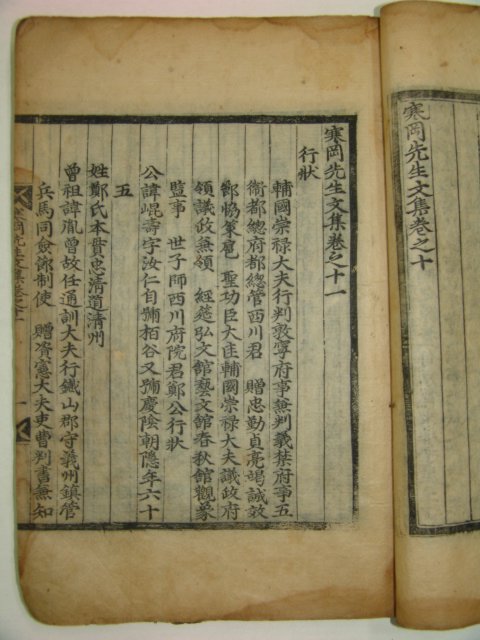 寒岡先生文集卷之十
寒岡先生文集卷之十一
行狀
輔國崇禄大夫行判敦寧府事兼判義禁府事五
衛都總府都總管西川君 贈忠勤貞亮竭誠效
節協策扈 聖功臣大匡輔國崇禄大夫議政府
領議政兼領 經筵弘文館藝文館春秋館觀象
監事 世子師西川府院君鄭公行狀
公諱崐壽字汝仁自號栢谷又號慶陰朝隱年六十
五
姓鄭氏本貫忠清道清州
曾祖諱胤曾故任通訓大夫行鐵山郡守義州鎮管
兵馬同僉節制使 贈資憲大夫吏曹判書兼知
寒岡先生文集卷之十一
一